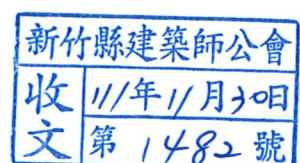 新竹縣建築師公會
收文
111年11月30日
第1482號